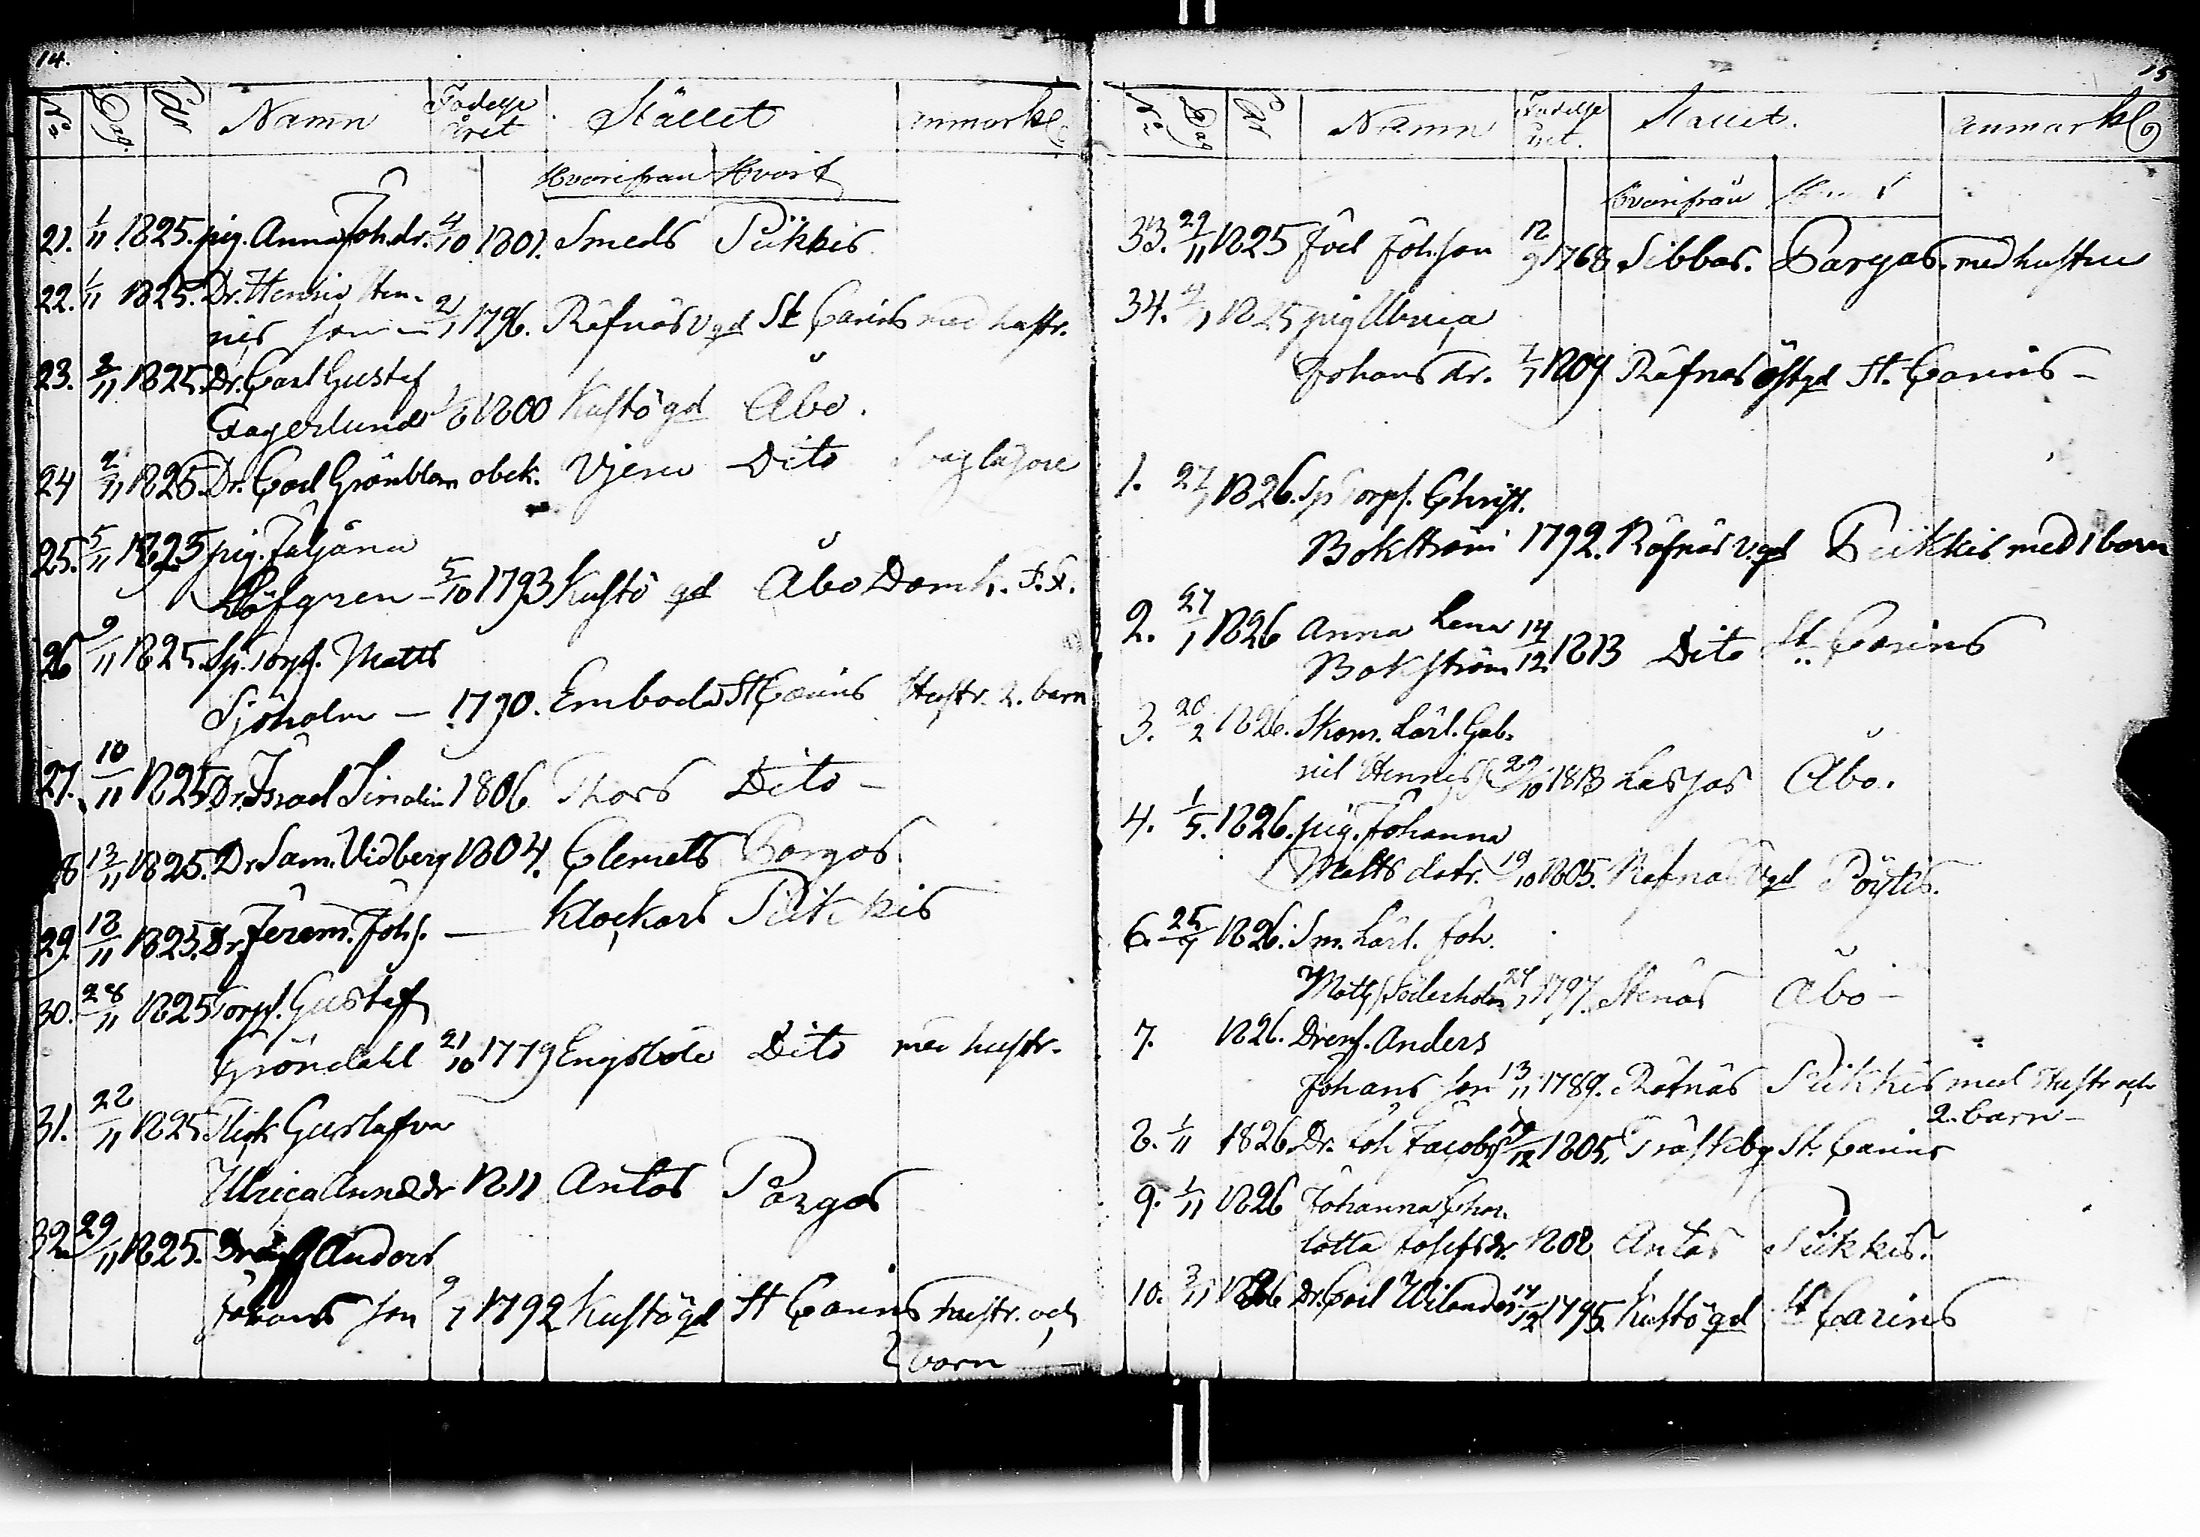 14.
No Dag. År Namn Födelse året Stället anmärk
Hvarifrån Hvart
21. 1/11 1825. pig. Anna Joh.dr. 4/10 1801. Smeds Piikkis
22. 1/11 1825. Dr. Henric Hen-
rics son 1796. Räfnäs V gd St Carins med hustr.
23. 2/11 1825 Dr. Carl Gustaf
Fagerlund 1800 Kustö gd Åbo.
24 1825. Dr. Carl Grönblom obek. Dito
25. 5/11 1825 pig. Juljana
Löfgren - 5/10 1793 Kustö gd Åbo Domk. F.F.
26 9/11 1825. Sp. Torp. Matts
Sjöholm — 1790. Embola St Carins Hustr. 2. barn
27. 10/11 1825 Dr. Israel 1806 Thors Dito —
28 13/11 1825. Dr Sam. Widberg 1804. Clemets Pargas
29. 18/11 1825. Dr Jerem. Johs. — Klockars Piikkis
30. 28/11 1825 Torp. Gustaf
Gröndahl 21/10 1779 Engsbole Dito med hustr.
31. 28/11 1825 Flick Gustafva
Ulrica And.dr 1811 Antas Pargas
32 29/11 1825. Dreng Anders
Johans son 9/7 1792 Kustö gd St Carins hustr. och
2 barn
15
No Dag År Namn Födelse året. Stället. anmärk
hvarifrån
33. 29/11 1825 Joel Joh.son 12/9 1768 Sibbas. Pargas. med hustru
34. 1825 pig Ulrica
Johans dr. 1809 Räfnäs östgd St. Carins —
1. 1826. Sp Torp. Christ.
Bokström 1792. Räfnäs V. gd Piikkis med 1 barn
2. 27/1 1826 Anna Lena 14/12 1813 Dito St. Carins
Bokström
3. 20/2 1826. Skom. Lärl. Gab-
riel Henrics 29/10 1813 Lasjas Åbo.
4. 1/5. 1826. pig. Johanna
Matts dotr. 19/10 1805. Räfnäs V gd Pöytis.
6. 25/9 1826. Sm. Lärl. Joh.
Matts Söderholm 1797. Stenäs Åbo —
7. 1826. Dreng. Anders
Johans son 13/11 1789. Räfnäs Piikkis med Hustr och
2. barn —
8. 1/11 1826 Dr. Joh Jacobs 1805. Träskby St. Carins
9. 1/11 1826 Johanna Char.
lotta Josefs dr. 1808 Antas Piikkis.
10. 3/11 1826 Dr. Carl Wilander 14/12 1795. Kustö gd St Carins